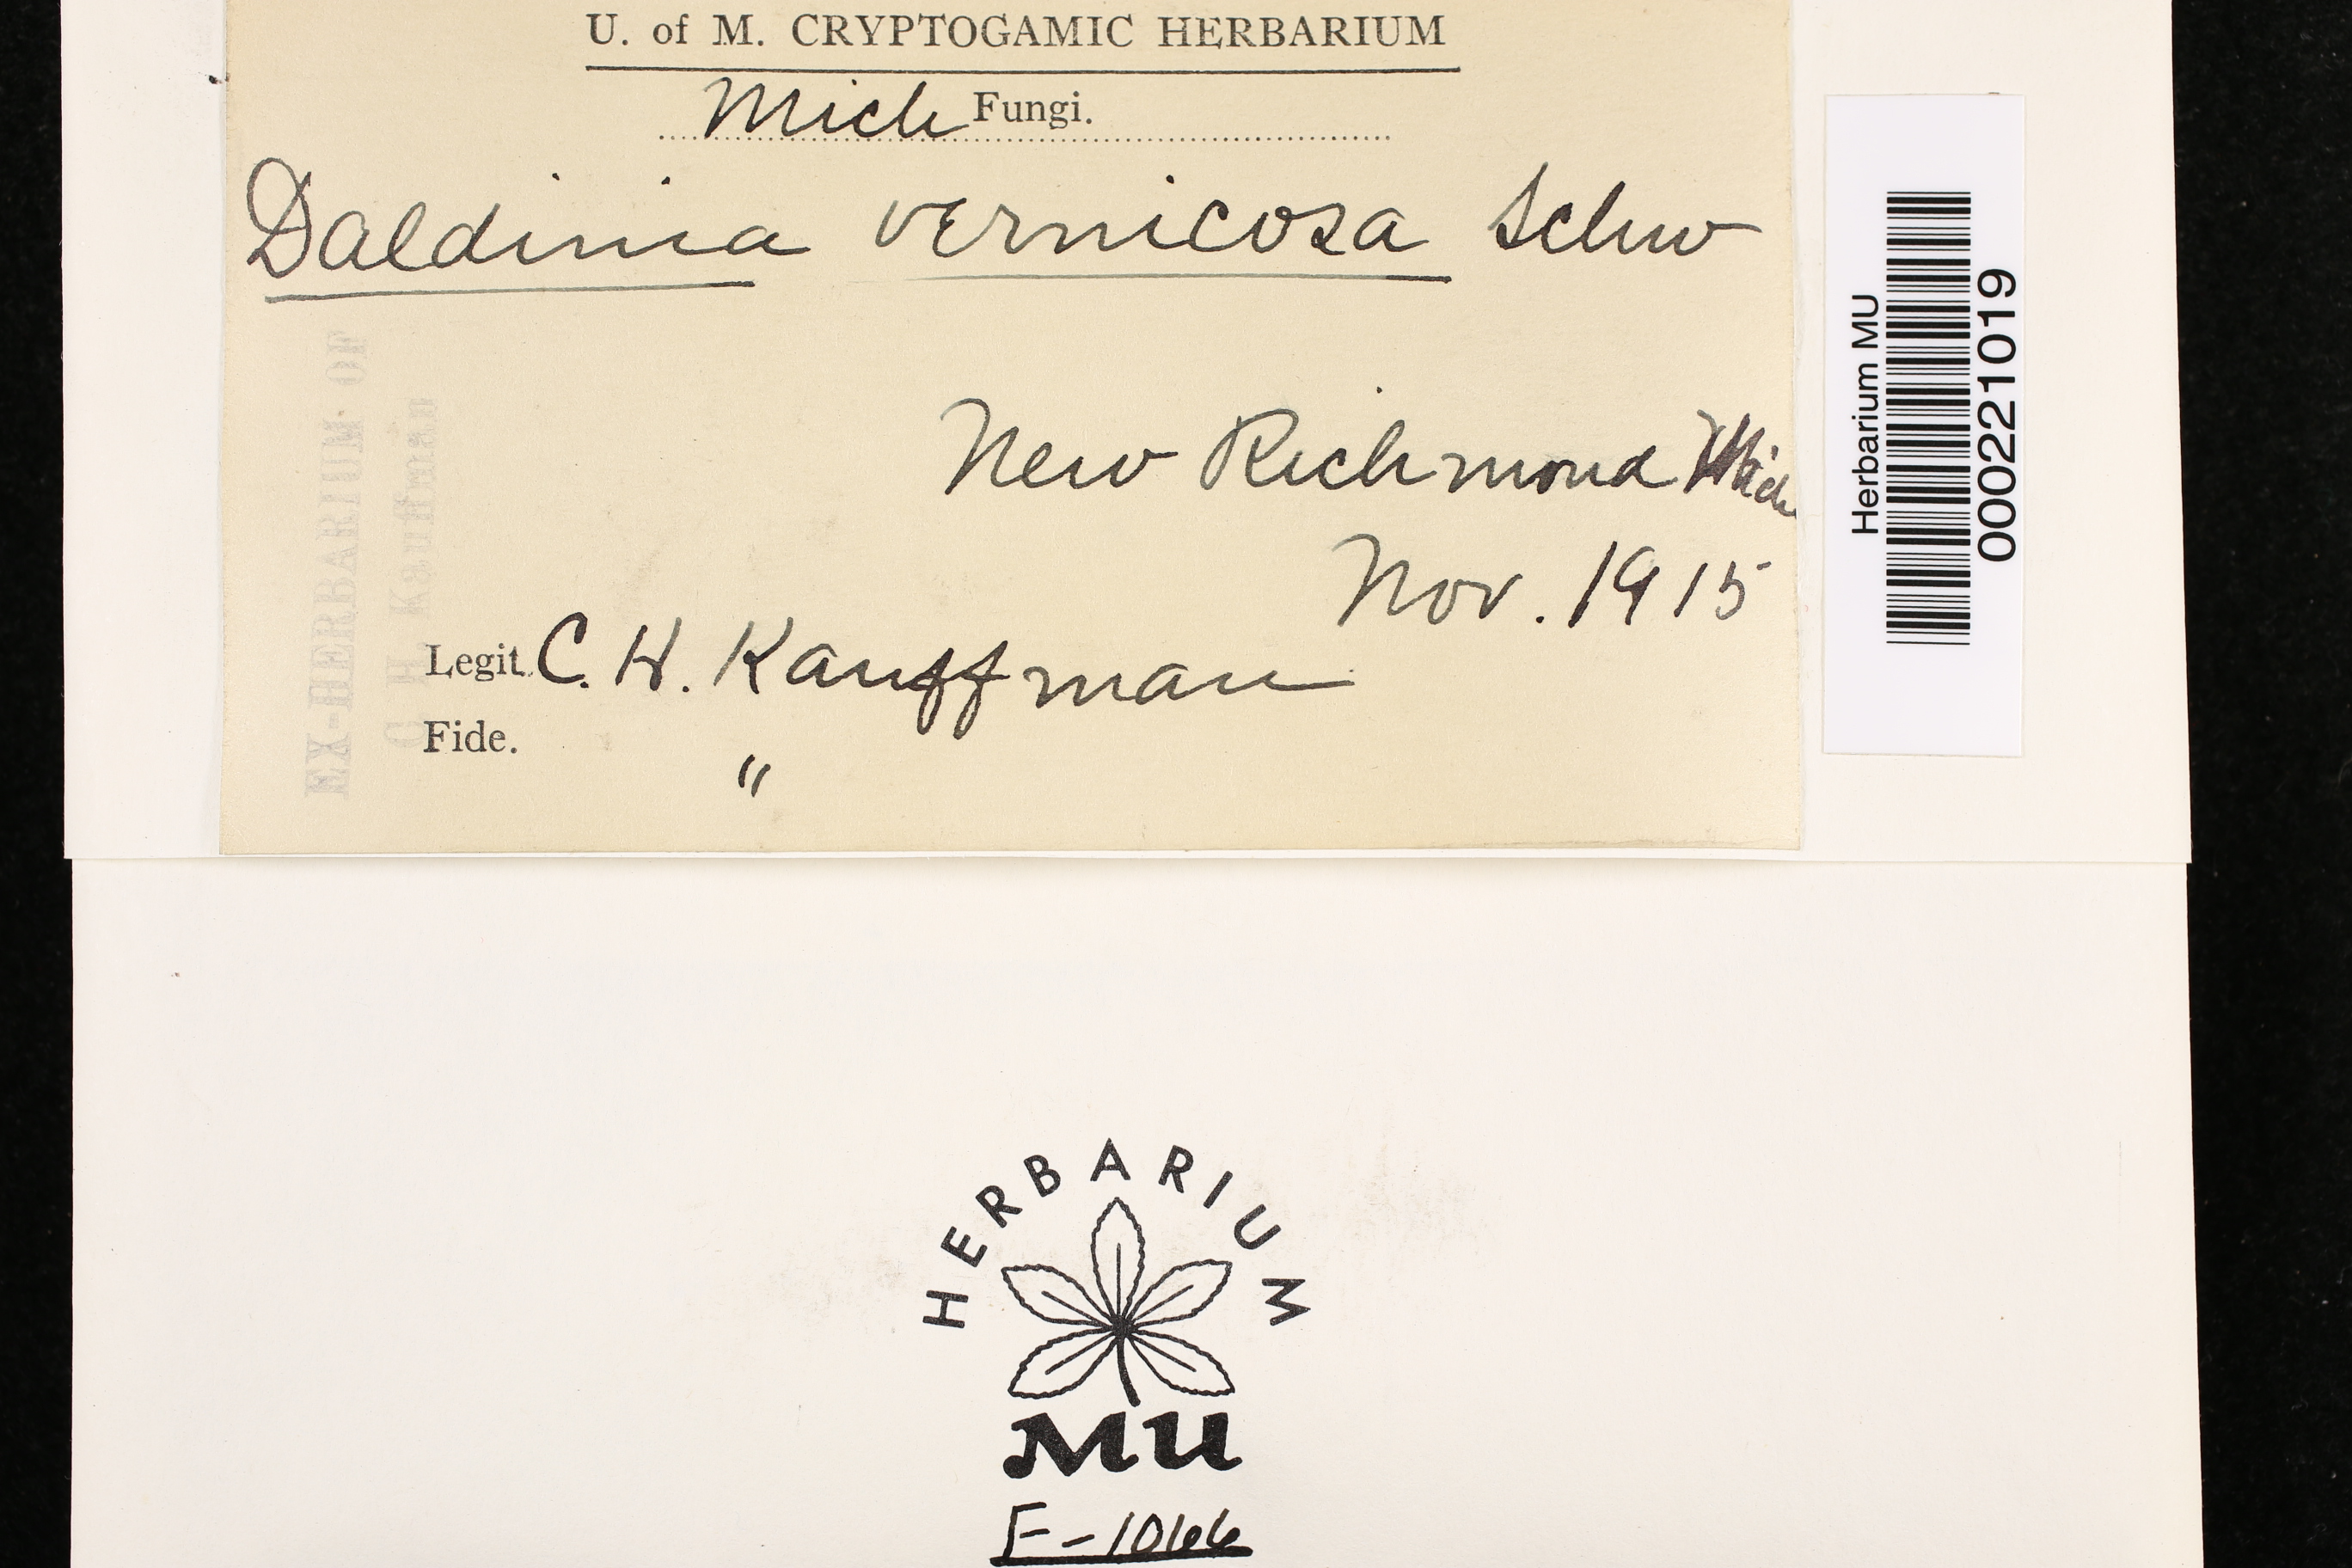 U. of M. CRYPTOGAMIC HERBARIUM
Mich Fungi.
Daldinia vernicosa Schw
New Richmond Mich
Nov. 1915
Legit. C. H. Kauffman
Fide. "
EX-HERBARIUM OF
C. H. Kauffman
Herbarium MU
000221019
HERBARIUM
MU
F-1066